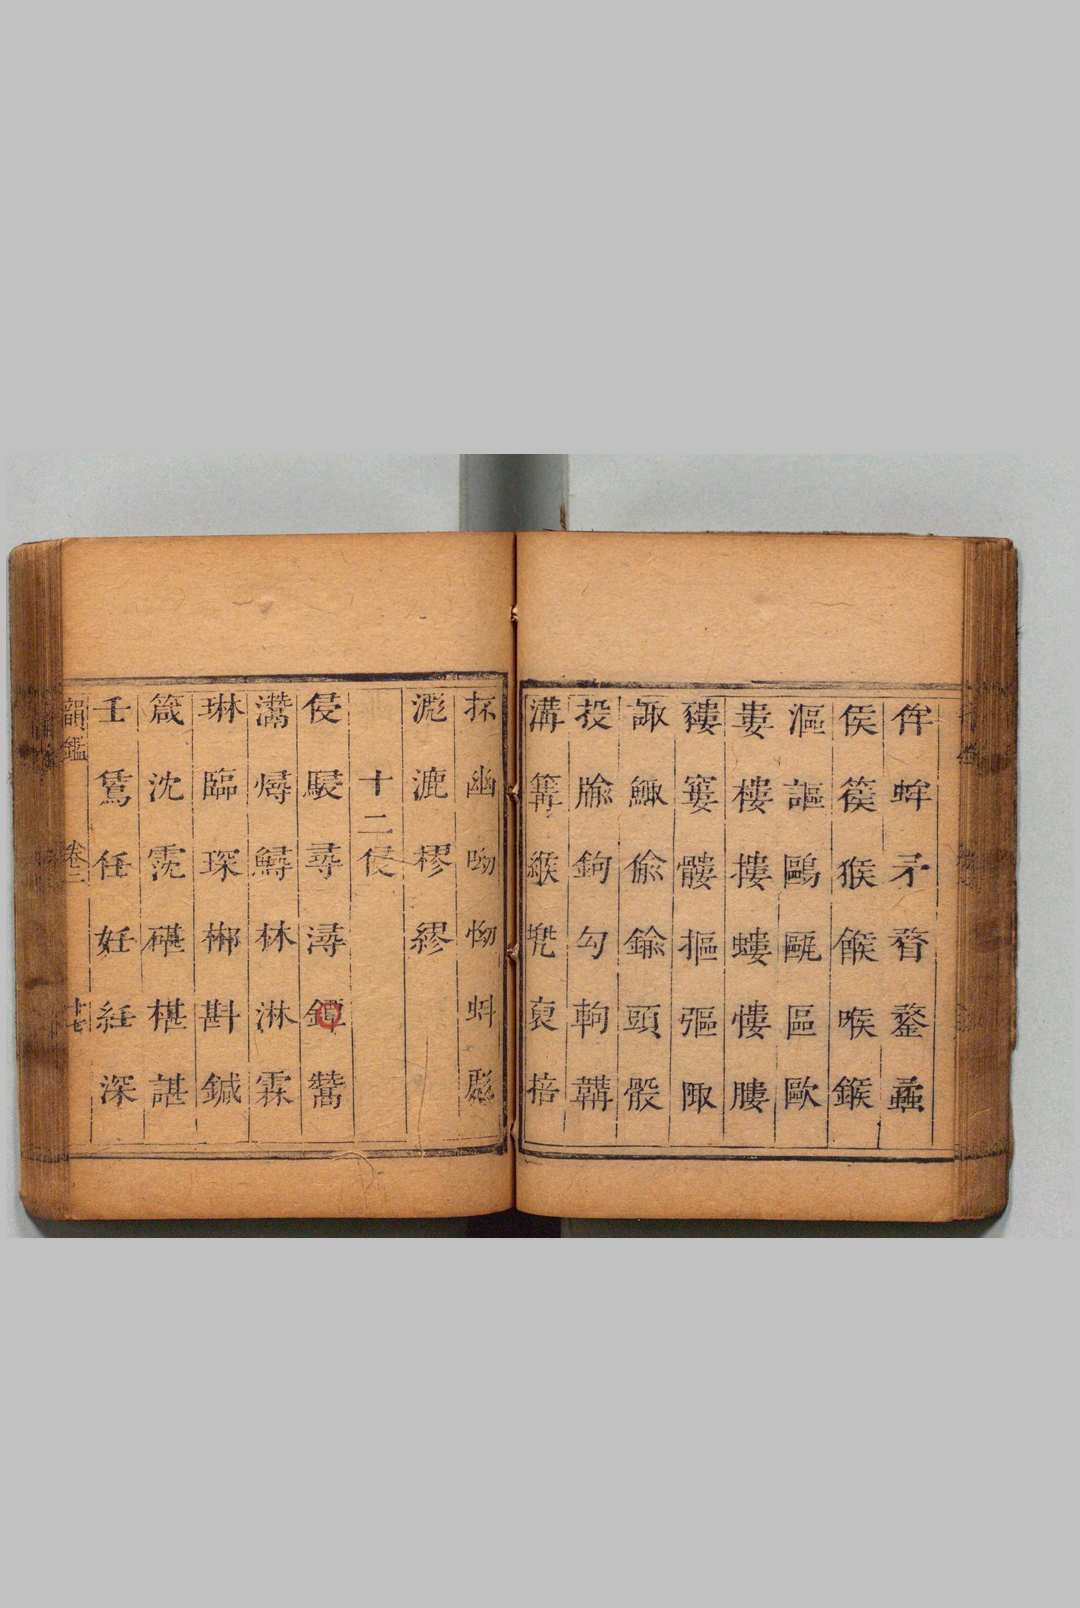 侔蛑矛瞀鍪蟊
侯篌猴餱喉鍭
漚謳鷗甌區歐
婁樓摟螻慺膢
貗窶髏摳彄陬
諏鯫偷鍮頭骰
投牏鉤勾軥韝
溝篝緱兜裒掊
抔幽呦怮虯彪
滮淲樛繆
十二侵
侵駸尋潯鐔鬵
灊燖鱘林淋霖
琳臨琛郴斟鍼
箴沈霃碪椹諶
壬鵀任妊紝深
韻鑑 卷二 十七